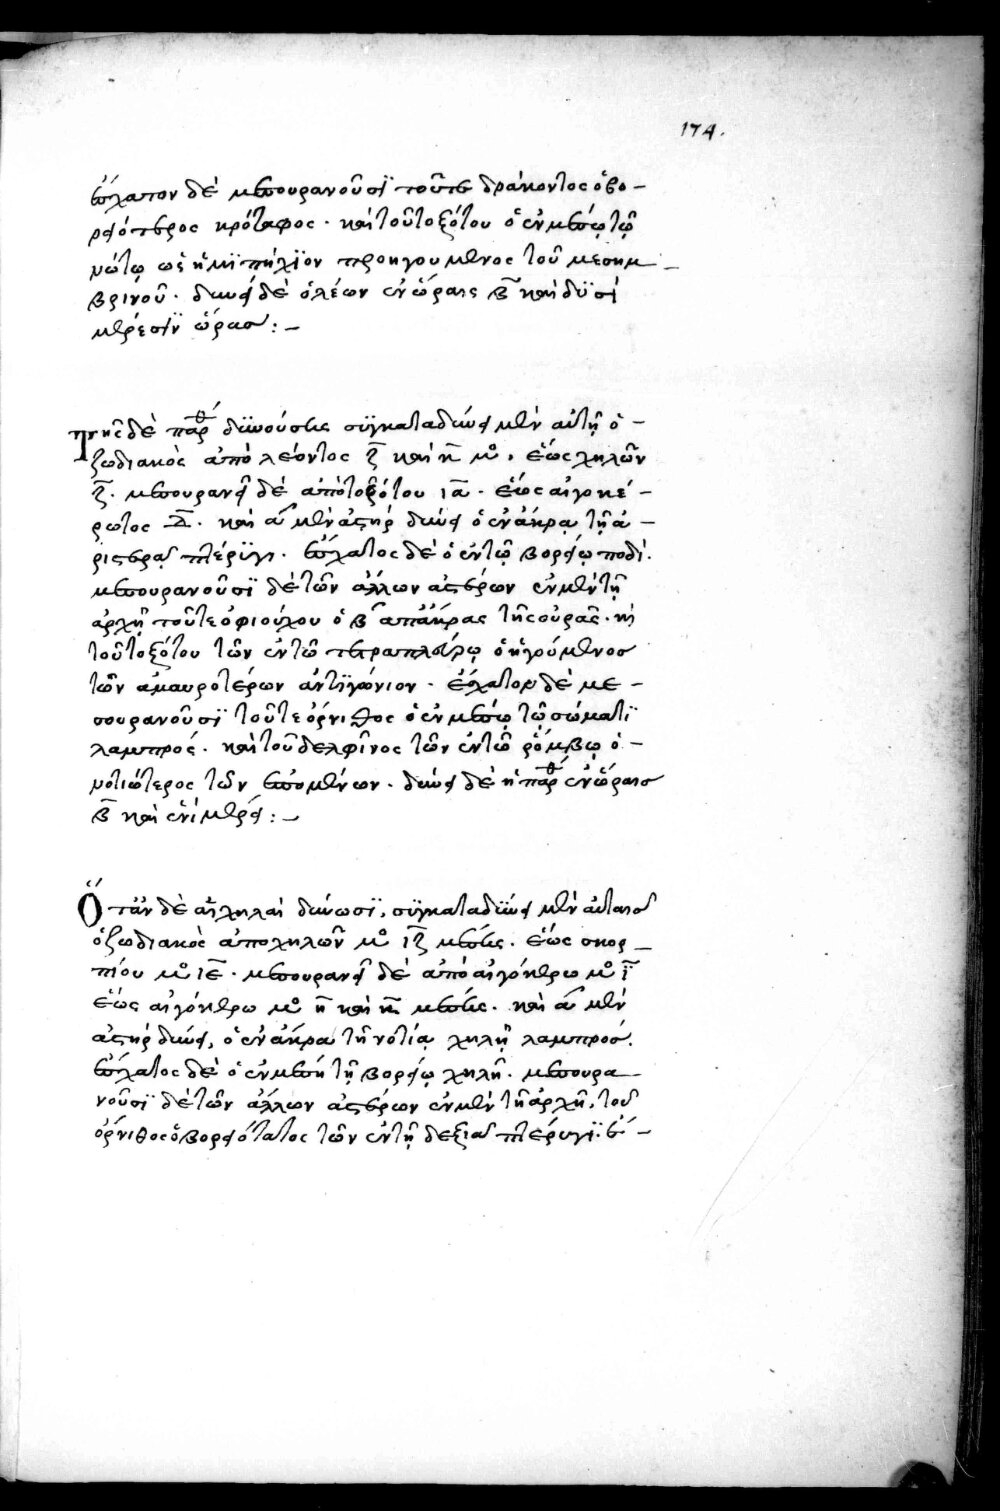 174.
ἔσχατον δὲ μεσουρανοῦσϊ τοῦτε δράκοντος ὁ βο-
ρειότερος κρόταφος · καὶ τοῦ τοξότου ὁ ἐν μέσῳ τῷ
νώτῳ ὡς ἡμϊπήχϊον προηγούμενος τοῦ μεσημ-
βρινοῦ · δύνει δὲ ὁ λέων ἐν ὥραις β̅ καὶ δϋσὶ
μέρεσϊν ὥρας : –
Τῆς δὲ παρ^θ δϋνούσης σϋγκαταδύνει μὲν αὐτῇ ὁ -
ζωδιακὸς ἀπὸ λέοντος ζ̅ καὶ κ̅ μ^ο · ἕως χηλῶν
ζ̅ · μεσουρανεῖ δὲ ἀπὸ τοξότου ια̅ · ἕως αἰγοκέ-
ρωτος δ̅ · καὶ α^ μὲν ἀστὴρ δύνει ὁ ἐν ἄκρᾳ τῇ ἀ-
ριστερᾷ πτέρϋγι · ἔσχατος δὲ ὁ ἐν τῷ βορείῳ ποδί ·
μεσουρανοῦσϊ δὲ τῶν ἄλλων ἀστέρων ἐν μὲν τῇ
ἀρχῇ τοῦτε ὀφιούχου ὁ β^ ἀπ' ἄκρας τῆς οὐρᾶς · κὶ
τοῦ τοξότου τῶν ἐν τῷ τετραπλεύρῳ ὁ ἡγούμενος
τῶν ἀμαυροτέρων ἀντϊγώνιον · ἔσχατον δὲ με-
σουρανοῦσϊ τοῦτε ὄρνιθος ὁ ἐν μέσῳ τῷ σώματϊ
λαμπρός · καὶ τοῦ δελφῖνος τῶν ἐν τῷ ῥόμβῳ ὁ -
νοτιώτερος τῶν ἑπομένων · δύνει δὲ ἡ παρ^θ ἐν ὥραις
β̅ καὶ ἡμίμερει : –
Ὅταν δὲ αἱ χηλαὶ δύνωσϊ, σϋγκαταδϋνει μὲν αὐταῖς
ὁ ζωδιακὸς ἀπο χηλῶν μ^ο ιζ̅ μέσης · ἕως σκορ-
πίου μ^ο ιε̅ · μεσουρανεῖ δὲ ἀπὸ αἰγόκερω μ^ο ϊ̅
ἕως αἰγόκερω μ^ο η̅ καὶ κ̅ μέσης · καὶ α^ μὲν
ἀστὴρ δύνει, ὁ ἐν ἄκρᾳ τῇ νοτίᾳ χηλῇ λαμπρός.
ἔσχατος δὲ ὁ ἐν μέσῃ τῇ βορείῳ χηλῇ · μεσουρα-
νοῦσϊ δὲ τῶν ἄλλων ἀστέρων ἐν μὲν τῇ ἀρχῇ, τοῦ
ὄρνιθος ὁ βορειότατος τῶν ἐν τῇ δεξιᾷ πτέρυγϊ · ἔ-